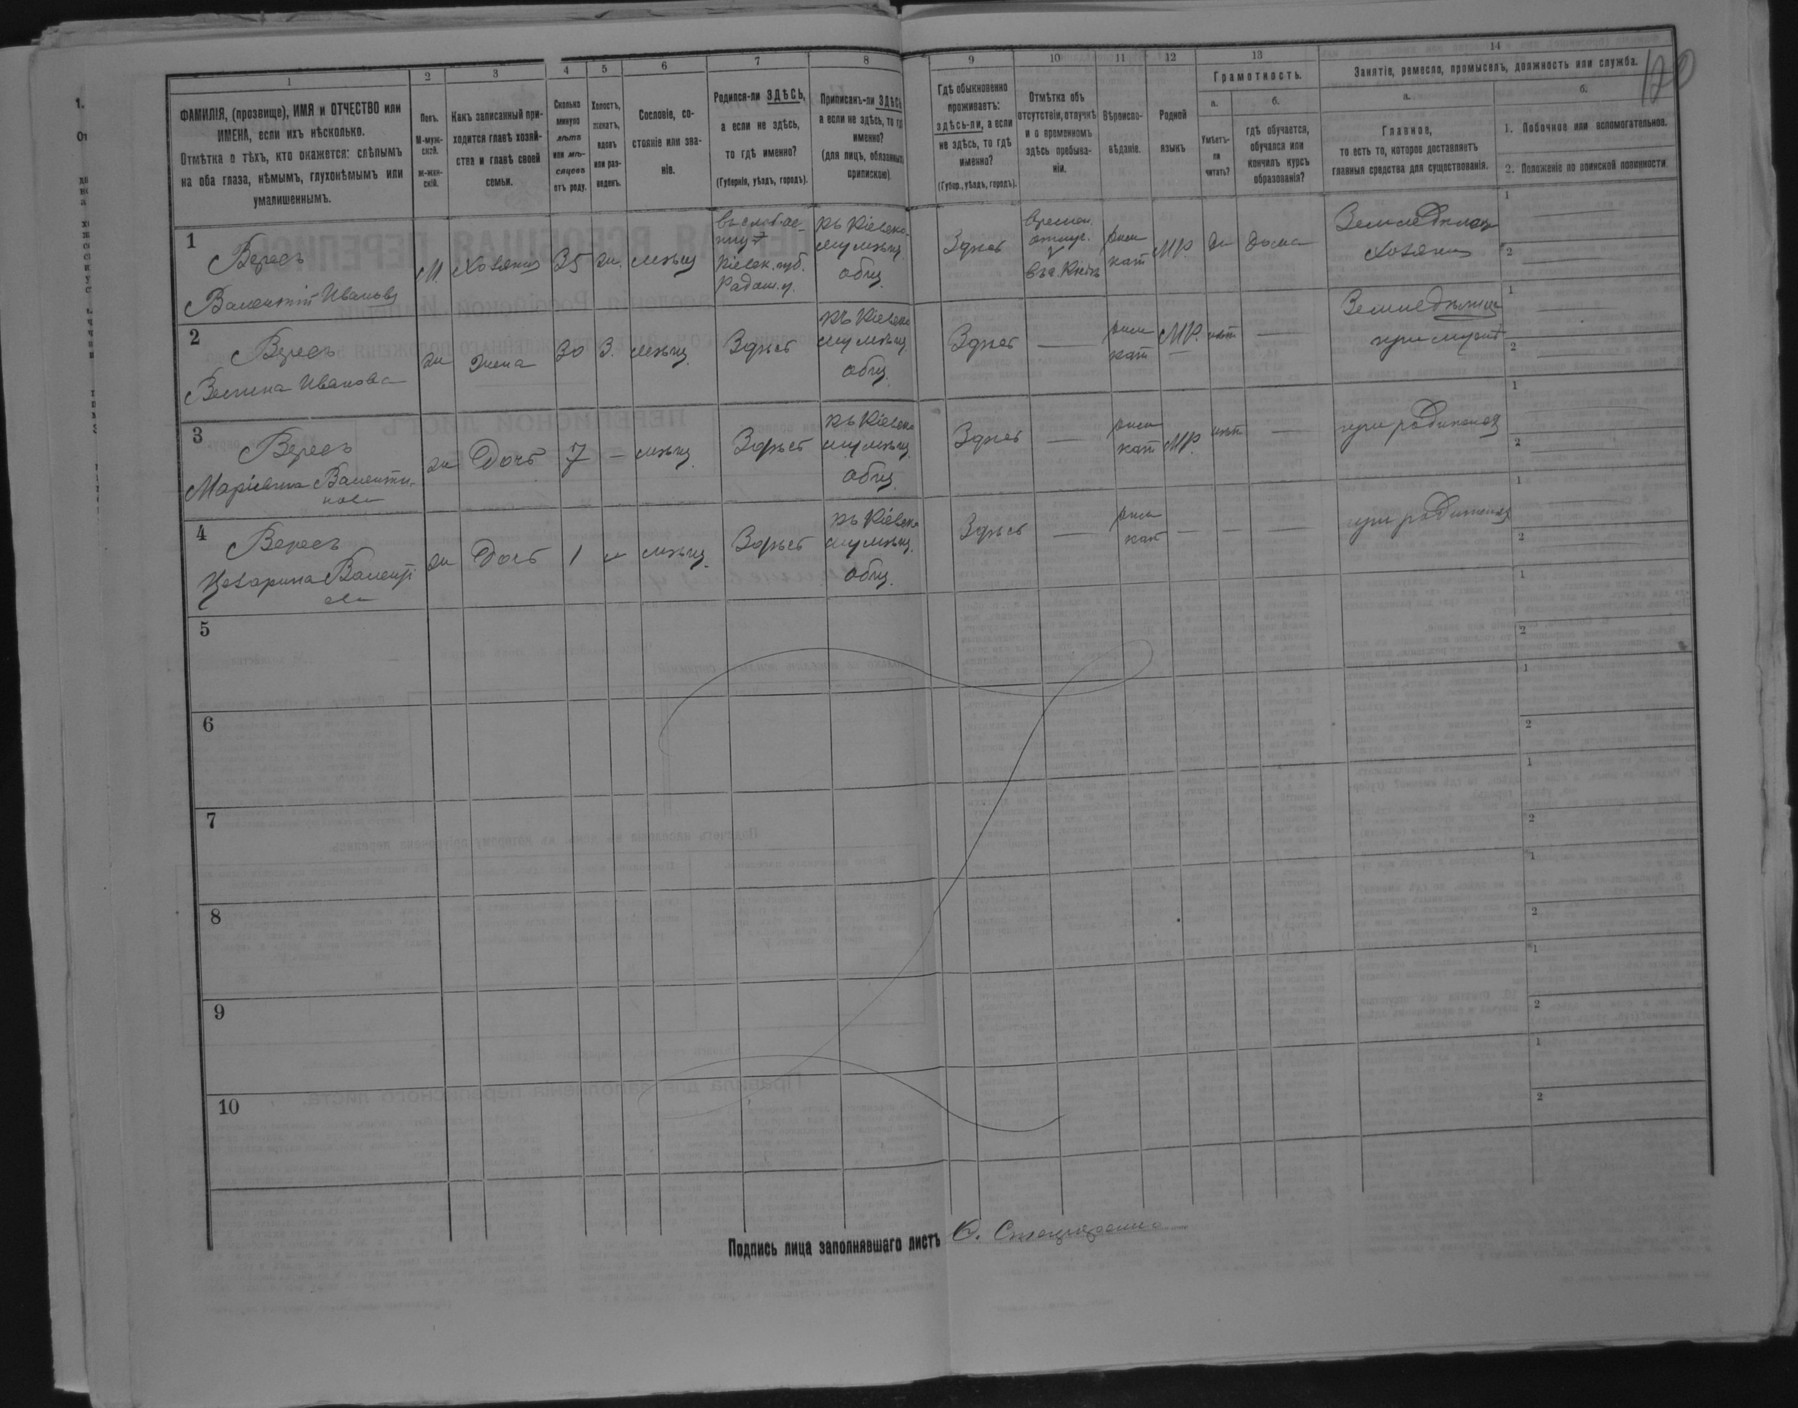 1 2 3 4 5 6 7 8 9 10 11 12 13 14
120
ФАМИЛІЯ, (прозвище), ИМЯ и ОТЧЕСТВО или
ИМЕНА, если ихъ нѣсколько.
Отмѣтка о тѣхъ, кто окажется: слѣпымъ
на оба глаза, нѣмымъ, глухонѣмымъ или
умалишеннымъ.
Полъ.
М-муж-
ской.
ж-жен-
скій.
Какъ записанный при-
ходится главѣ хозяй-
ства и главѣ своей
семьи.
Сколько
минуло
лѣтъ
или мѣ-
сяцевъ
отъ роду.
Холостъ,
женатъ,
вдовъ
или раз-
веденъ.
Сословіе, со-
стояніе или зва-
ніе.
Родился-ли ЗДѢСЬ,
а если не здѣсь,
то гдѣ именно?
(Губернія, уѣздъ, городъ).
Приписанъ-ли ЗДѢСЬ
а если не здѣсь, то гдѣ
именно?
(для лицъ, обязанныхъ
припискою).
Гдѣ обыкновенно
проживаетъ:
здѣсь-ли, а если
не здѣсь, то гдѣ
именно?
(Губер., уѣздъ, городъ).
Отмѣтка объ
отсутствіи, отлучкѣ
и о временномъ
здѣсь пребыва-
ніи.
Вѣроиспо-
вѣданіе.
Родной
языкъ
Грамотность.
а. б.
Умѣетъ-
ли
читать?
гдѣ обучается,
обучался или
кончилъ курсъ
образованія?
Занятіе, ремесло, промыселъ, должность или служба.
а. б.
Главное,
то есть то, которое доставляетъ
главныя средства для существованія.
1. Побочное или вспомогательное.
2. Положеніе по воинской повинности
1
Вересъ
Валентій Ивановъ
М. Хозяинъ 35 ж. мѣщ.
Кіевск. губ.
Радом. у.
къ Кіевско
му мѣщ.
общ.
Здѣсь
Времен.
отлуч.
рим
кат
МР. да дома
Земледѣлец
хозяинъ
2
Вересъ
Иванова
ж жена 30 З. мѣщ. Здѣсь
къ Кіевско
му мѣщ.
общ.
Здѣсь —
рим
кат
МР. нѣт —
Земледѣлец
при мужѣ
3
Вересъ
Валенти-
нова
ж Дочь 7 — мѣщ. Здѣсь
къ Кіевско
му мѣщ.
общ.
Здѣсь —
рим
кат
МР. нѣт —
при родителях
4
Вересъ
ж Дочь 1 — мѣщ. Здѣсь
къ Кіевско
му мѣщ.
общ.
Здѣсь —
рим
кат
— — —
при родителях
5
6
7
8
9
10
Подпись лица заполнявшаго листъ